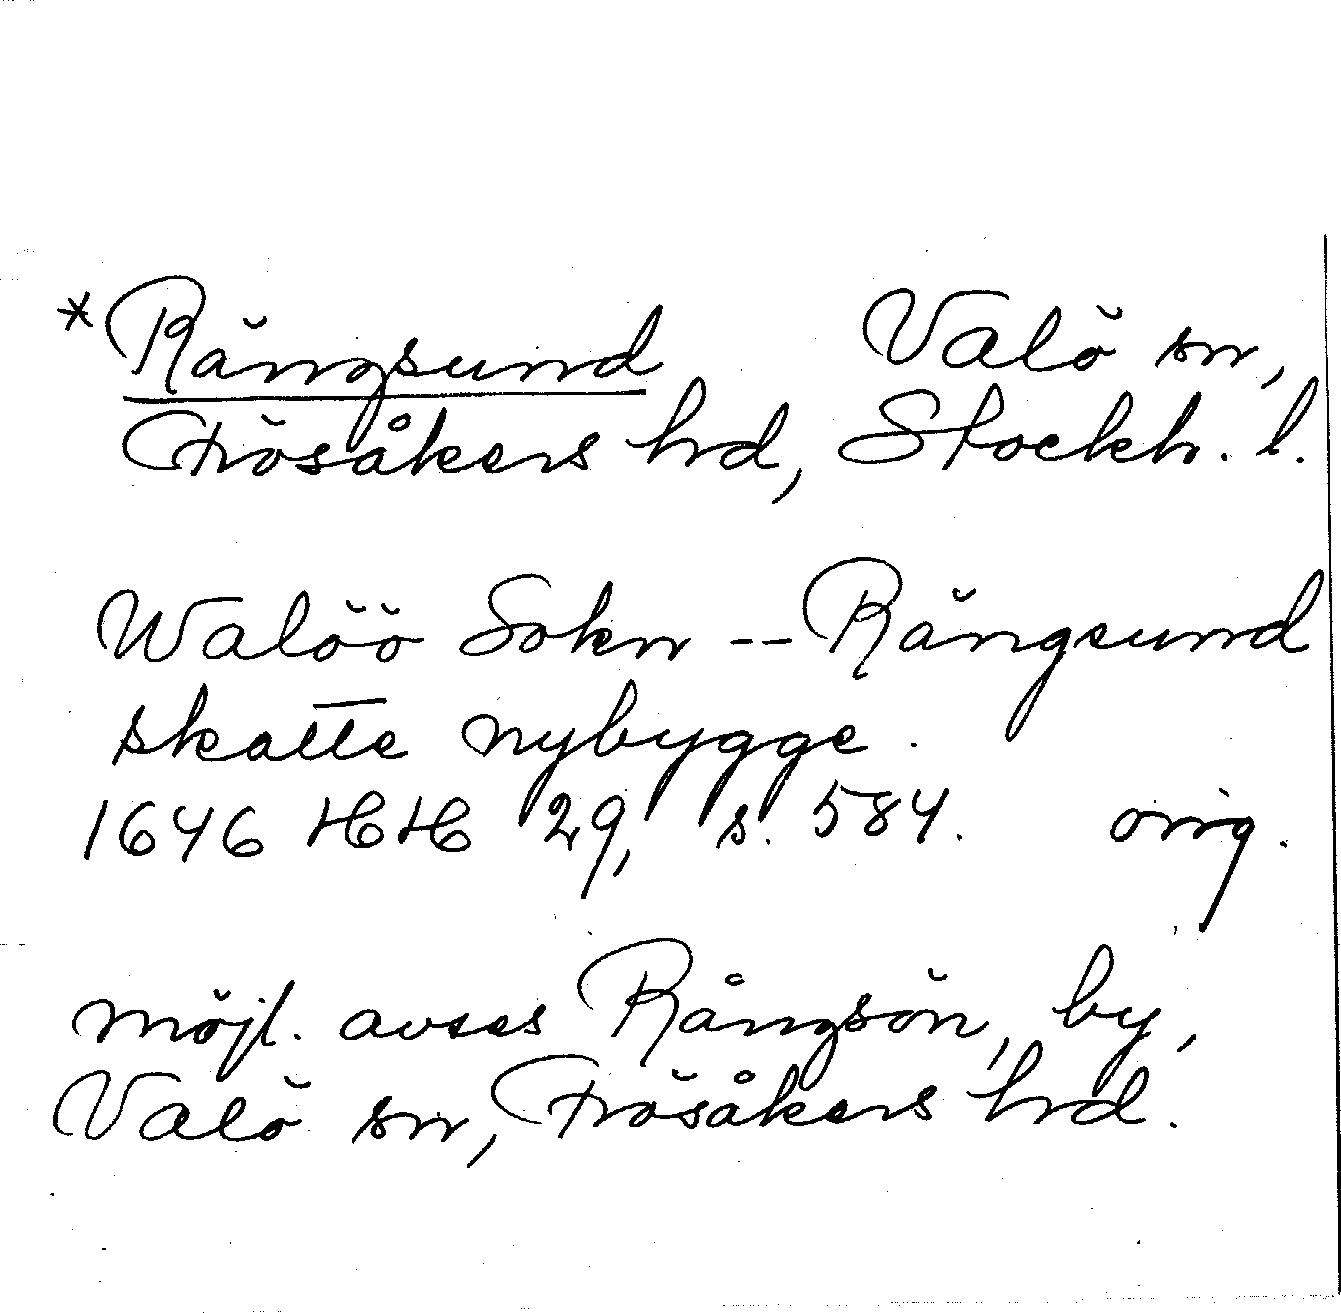 *Rängsund Valö sn,
Frösåkers hd, Stockh. l.
Walöö Sokn -- Rängsund
skatte nybygge.
1646 HH 29, s. 584. orig.
möjl. avses Rångsön, by,
Valö sn, Frösåkers hd.